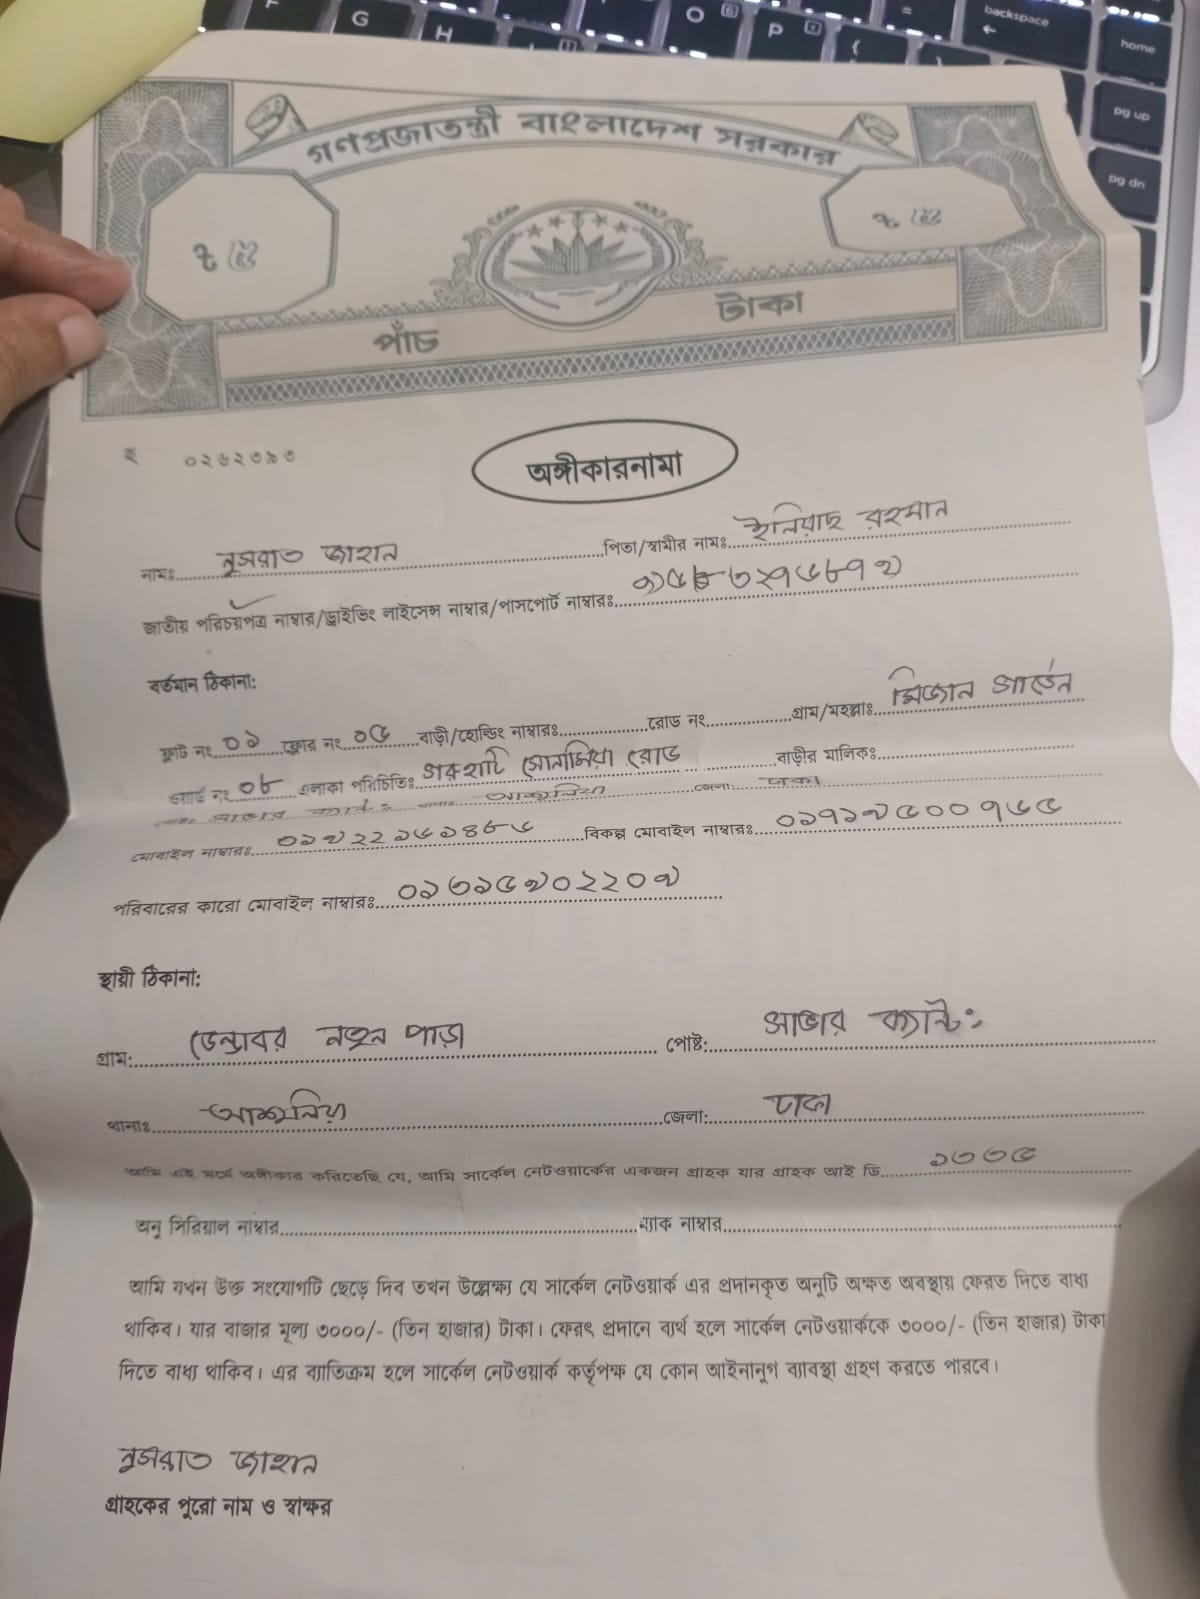 গণপ্রজাতন্ত্রী বাংলাদেশ সরকার
৳ ৫ ৳ ৫
পাঁচ টাকা
০২৬২৩৯৩
অঙ্গীকারনামা
নামঃ নুসরাত জাহান পিতা/স্বামীর নামঃ ইলিয়াছ রহমান
জাতীয় পরিচয়পত্র নাম্বার/ড্রাইভিং লাইসেন্স নাম্বার/পাসপোর্ট নাম্বারঃ
বর্তমান ঠিকানা:
ফ্লাট নং ০১ ফ্লোর নং ০৫ বাড়ী/হোল্ডিং নাম্বারঃ রোড নং গ্রাম/মহল্লাঃ মিজান গার্ডেন
ওয়ার্ড নং ০৮ এলাকা পরিচিতিঃ গরুহাটি সোনামিয়া রোড বাড়ীর মালিকঃ
পোষ্টঃ সাভার ক্যান্টঃ থানাঃ আশুলিয়া জেলা: ঢাকা
মোবাইল নাম্বারঃ বিকল্প মোবাইল নাম্বারঃ ০১৭১৯৫০০৭৬৫
পরিবারের কারো মোবাইল নাম্বারঃ ০১৬১৫৯০২২০৯
স্থায়ী ঠিকানা:
গ্রাম: ডেন্ডাবর নতুন পাড়া পোষ্ট: সাভার ক্যান্ট:
থানাঃ আশুলিয়া জেলা: ঢাকা
আমি এই মর্মে অঙ্গীকার করিতেছি যে, আমি সার্কেল নেটওয়ার্কের একজন গ্রাহক যার গ্রাহক আই ডি ১৩৩৫
অনু সিরিয়াল নাম্বার ম্যাক নাম্বার
আমি যখন উক্ত সংযোগটি ছেড়ে দিব তখন উল্লেক্ষ্য যে সার্কেল নেটওয়ার্ক এর প্রদানকৃত অনুটি অক্ষত অবস্থায় ফেরত দিতে বাধ্য
থাকিব। যার বাজার মূল্য ৩০০০/- (তিন হাজার) টাকা। ফেরৎ প্রদানে ব্যর্থ হলে সার্কেল নেটওয়ার্ককে ৩০০০/- (তিন হাজার) টাকা
দিতে বাধ্য থাকিব। এর ব্যাতিক্রম হলে সার্কেল নেটওয়ার্ক কর্তৃপক্ষ যে কোন আইনানুগ ব্যাবস্থা গ্রহণ করতে পারবে।
নুসরাত জাহান
গ্রাহকের পুরো নাম ও স্বাক্ষর
G
H
O
P
backspace
home
pg up
pg dn